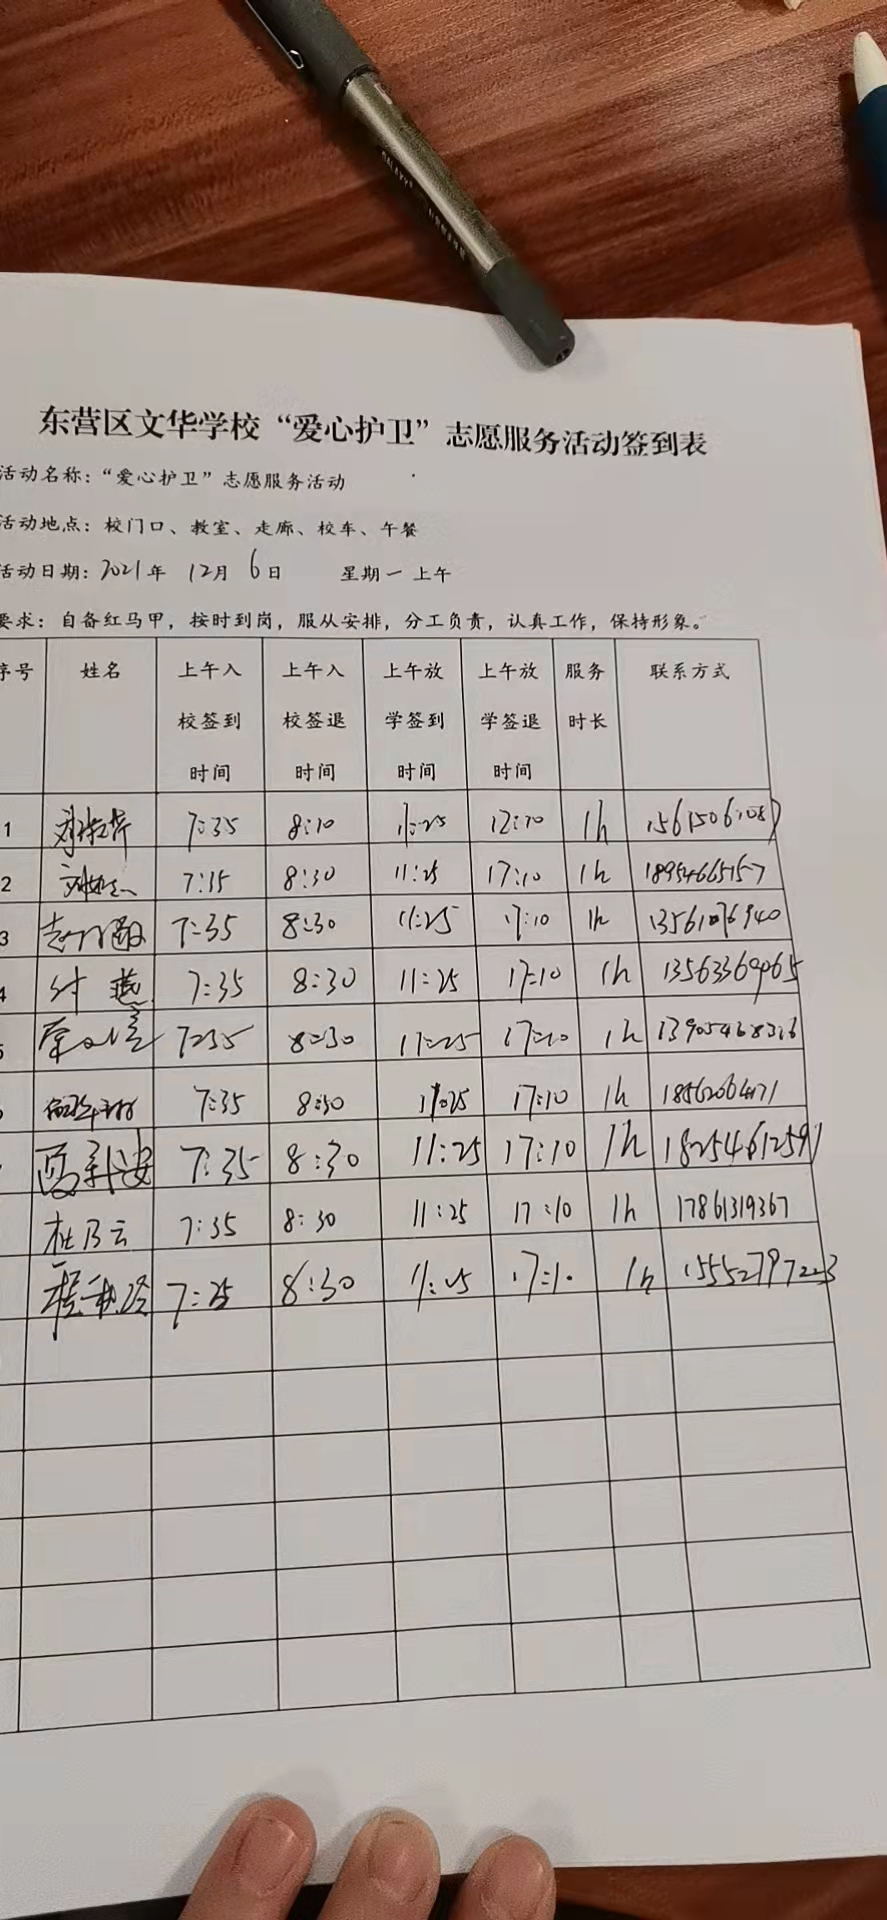 东营区文华学校“爱心护卫”志愿服务活动签到表
活动名称：“爱心护卫”志愿服务活动
活动地点：校门口、教室、走廊、校车、午餐
活动日期：2021年 12月 6日 星期一 上午
要求：自备红马甲，按时到岗，服从安排，分工负责，认真工作，保持形象。
序号 姓名 上午入校签到时间 上午入校签退时间 上午放学签到时间 上午放学签退时间 服务时长 联系方式
1 7:35 8:10 11:25 1h
2 7:15 8:30 11:25 17:10 1h 18954665157
3 7:35 8:30 11:25 17:10 1h
4 付燕 7:35 8:30 11:25 17:10 1h
5 7:35 8:30 17:25 17:10 1h
7:35 8:30 17:10 1h
7:35 8:30 11:25 17:10 1h 18254612591
杜乃云 7:35 8:30 11:25 17:10 1h 17861319367
7:25 8:30 11:25 17:10 1h